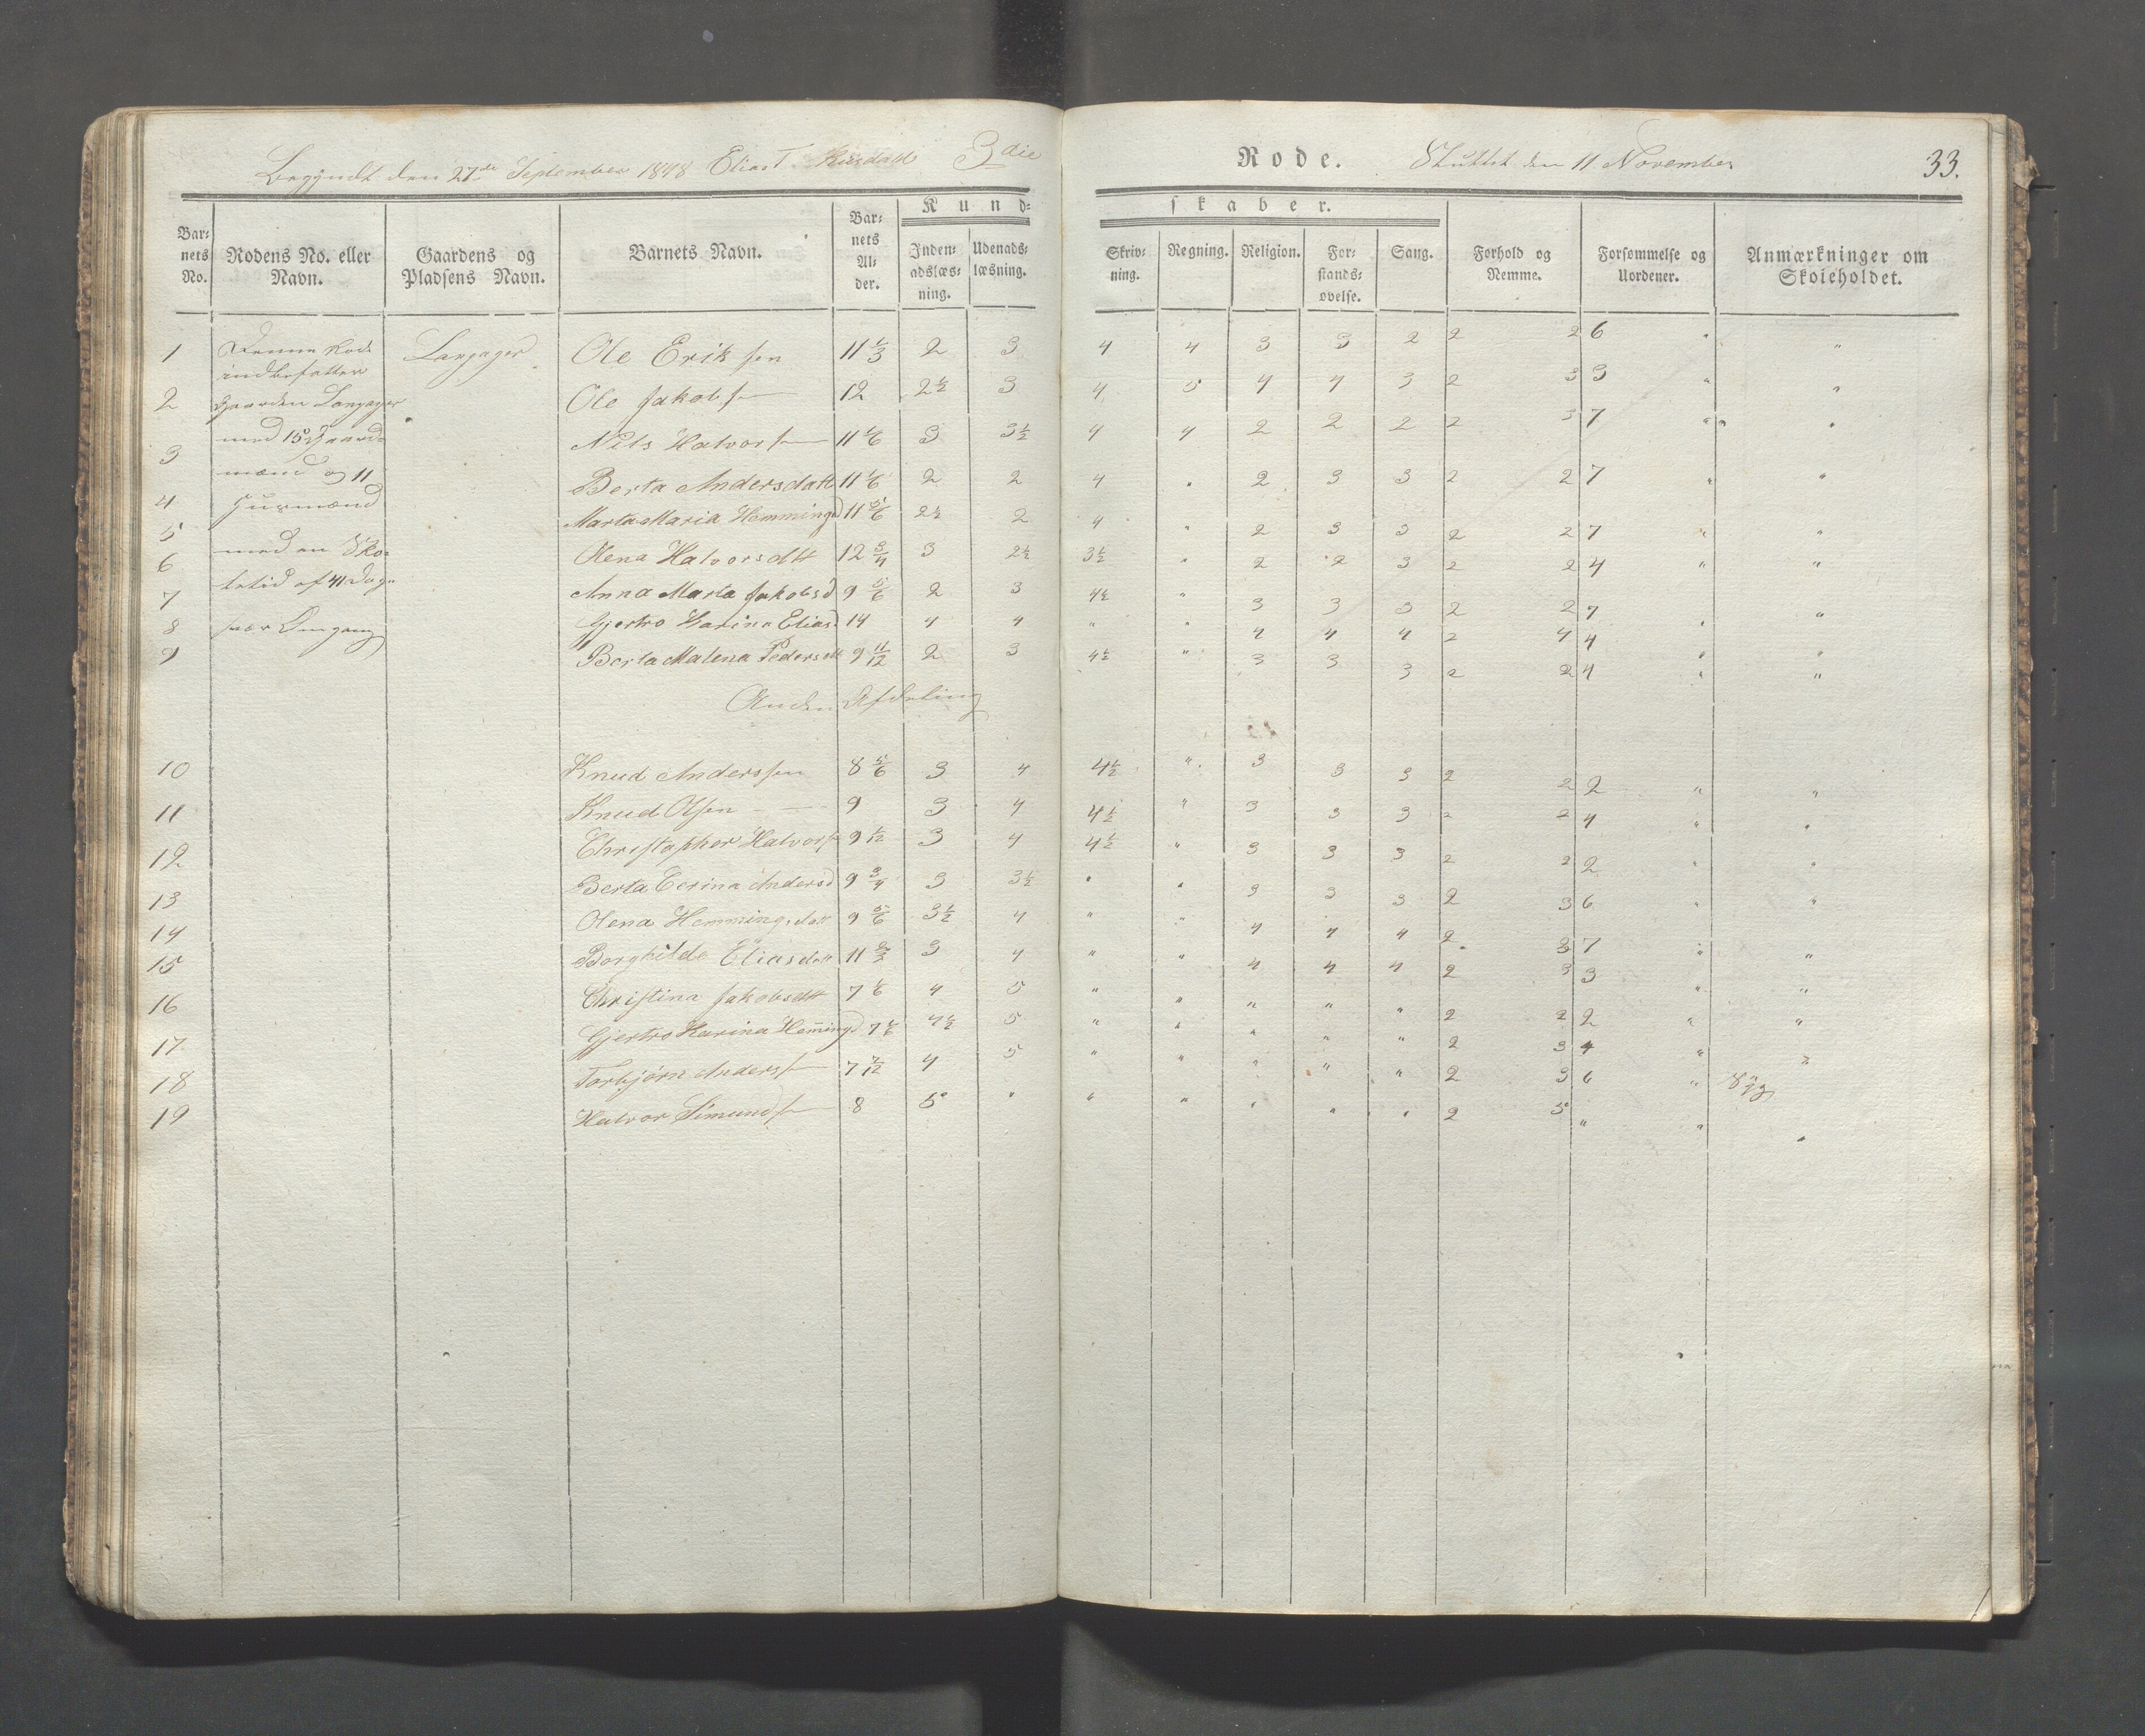 Begyndt den 27de September 1848 Elias T. 3die Rode. Sluttet den 11 November 33.
Kundskaber.
Barnets No. | Rodens No. eller Navn. | Gaardens og Pladsens Navn. | Barnets Navn. | Barnets Alder. | Indenadslæsning. | Udenadslæsning. | Skrivning. | Regning. | Religion. | Forstandsøvelse. | Sang. | Forhold og Nemme. | Forsømmelse og Uordener. | Anmærkninger om Skoleholdet.
Denne Rode
indbefatter
Gaarden Langager
med 15 Gaard-
mænd og 11
Huusmænd
med en Sko-
letid af 41 Dage
hver Omgang
1 Langager Ole Eriksen 11 1/3 2 3 4 4 3 3 2 2 2 6 " "
2 Ole Jakobsen 12 2 1/2 3 4 5 4 4 3 2 3 3 " "
3 Nils Halvorsen 11 1/6 3 3 1/2 4 4 2 2 2 2 3 7 " "
4 Berta Andersdatt 11 1/6 2 2 4 " 2 3 3 2 2 7 " "
5 Marta Maria Hemmingsd 11 5/6 2 1/2 2 4 " 2 3 3 2 2 7 " "
6 Olena Halvorsdtt 12 3/4 3 2 1/2 3 1/2 " 2 2 3 2 2 4 " "
7 Anna Marta Jakobsd 9 5/6 2 3 4 1/2 " 3 3 3 2 2 7 " "
8 Gjertro Karina Eliasd 14 4 4 " " 4 4 4 2 4 4 " "
9 Berta Malena Pedersdtt 9 11/12 2 3 4 1/2 " 3 3 3 2 2 4 " "
Anden Afdeling
10 Knud Anderssen 8 5/6 3 4 4 1/2 " 3 3 3 2 2 2 " "
11 Knud Olsen 9 3 4 4 1/2 " 3 3 3 2 2 4 " "
12 Christopher Halvors 9 1/12 3 4 4 1/2 " 3 3 3 2 2 2 " "
13 Berta Cerina Andersd 9 3/4 3 3 1/2 " " 3 3 3 2 3 6 " "
14 Olena Hemmingsdatt 9 5/6 3 1/2 4 " " 4 4 4 2 3 7 " "
15 Borghilde Eliasdatt 11 2/3 3 4 " " 4 4 4 2 3 3 " "
16 Christina Jakobsdtt 7 1/6 4 5 " " " " " 2 2 2 " "
17 Gjertro Karina Hemingsd 7 1/6 4 1/2 5 " " " " " 2 3 4 " "
18 Torbjørn Anders 7 7/12 4 5 " " " " " 2 3 6 " Syg
19 Halvor Simunds 8 5 " " " " " " 2 5 " " "